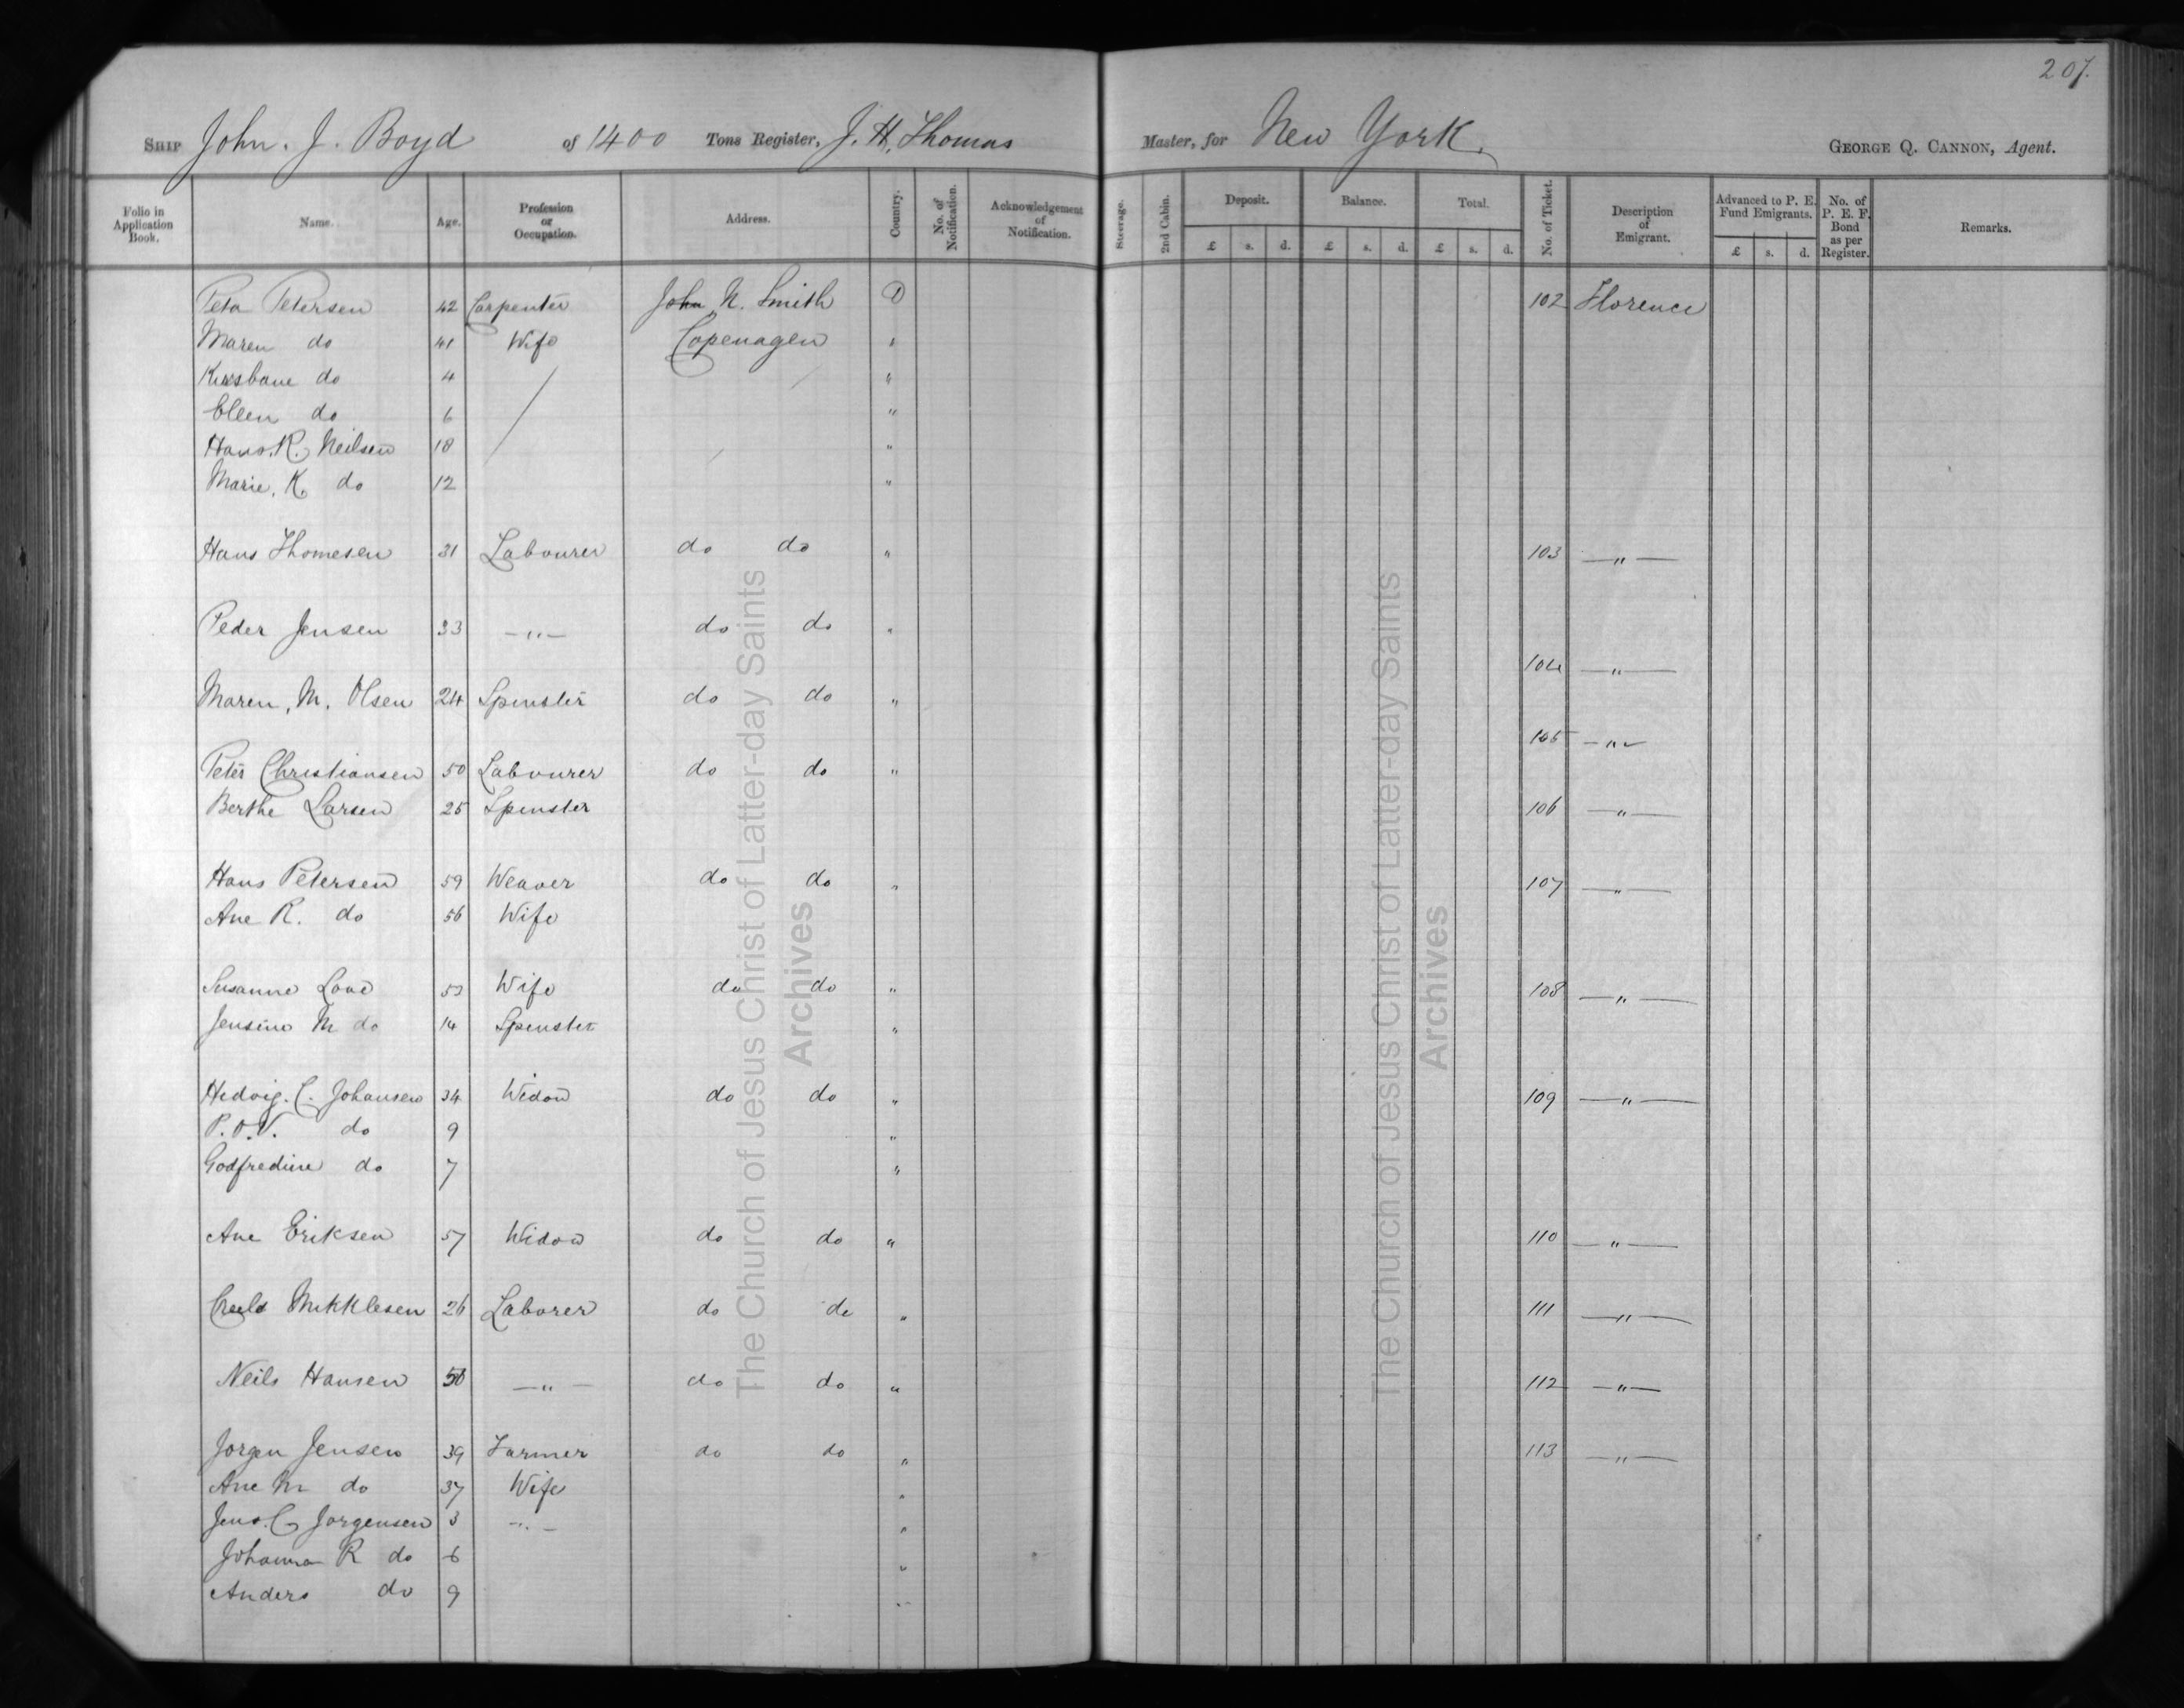 207.
SHIP John. J. Boyd of 1400 Tons Register, J. H. Thomas Master, for New York. GEORGE Q. CANNON, Agent.
Folio in Application Book. Name. Age. Profession or Occupation. Address. Country. No. of Notification. Acknowledgement of Notification. Steerage. 2nd Cabin. Deposit. £ s. d. Balance. £ s. d. Total. £ s. d. No. of Ticket. Description of Emigrant. Advanced to P. E. Fund Emigrants. £ s. d. No. of P. E. F. Bond as per Register. Remarks.
Petersen 42 Carpenter John N. Smith D 102 Florence
Maren do 41 Wife Copenagen "
do 4 "
Elleen do 6 "
Hans. R. Neilsen 18 "
Marie. K. do 12 "
Hans Thomesen 31 Labourer do do " 103 — " —
Peder Jensen 33 — " — do do "
104 — " —
Maren. M. Olsen 24 Spinster do do "
105 — " —
Peter Christiansen 50 Labourer do do "
Berthe Larsen 25 Spinster 106 — " —
Hans Petersen 59 Weaver do do " 107 — " —
Ane R. do 56 Wife
Susanne 53 Wife do do " 108 — " —
Jensine M do 14 Spinster "
Hedvig. C. Johansen 34 Widow do do " 109 — " —
P. O. V. do 9 "
Godfredine do 7 "
Ane Eriksen 57 Widow do do " 110 — " —
Mikklesen 26 Laborer do do " 111 — " —
Neils Hansen 50 — " — do do " 112 — " —
Jorgen Jensen 39 Farmer do do " 113 — " —
Ane M do 37 Wife "
Jens. C Jorgensen 3 — " — "
Johanna R do 6 "
Anders do 9 "
The Church of Jesus Christ of Latter-day Saints
Archives
The Church of Jesus Christ of Latter-day Saints
Archives